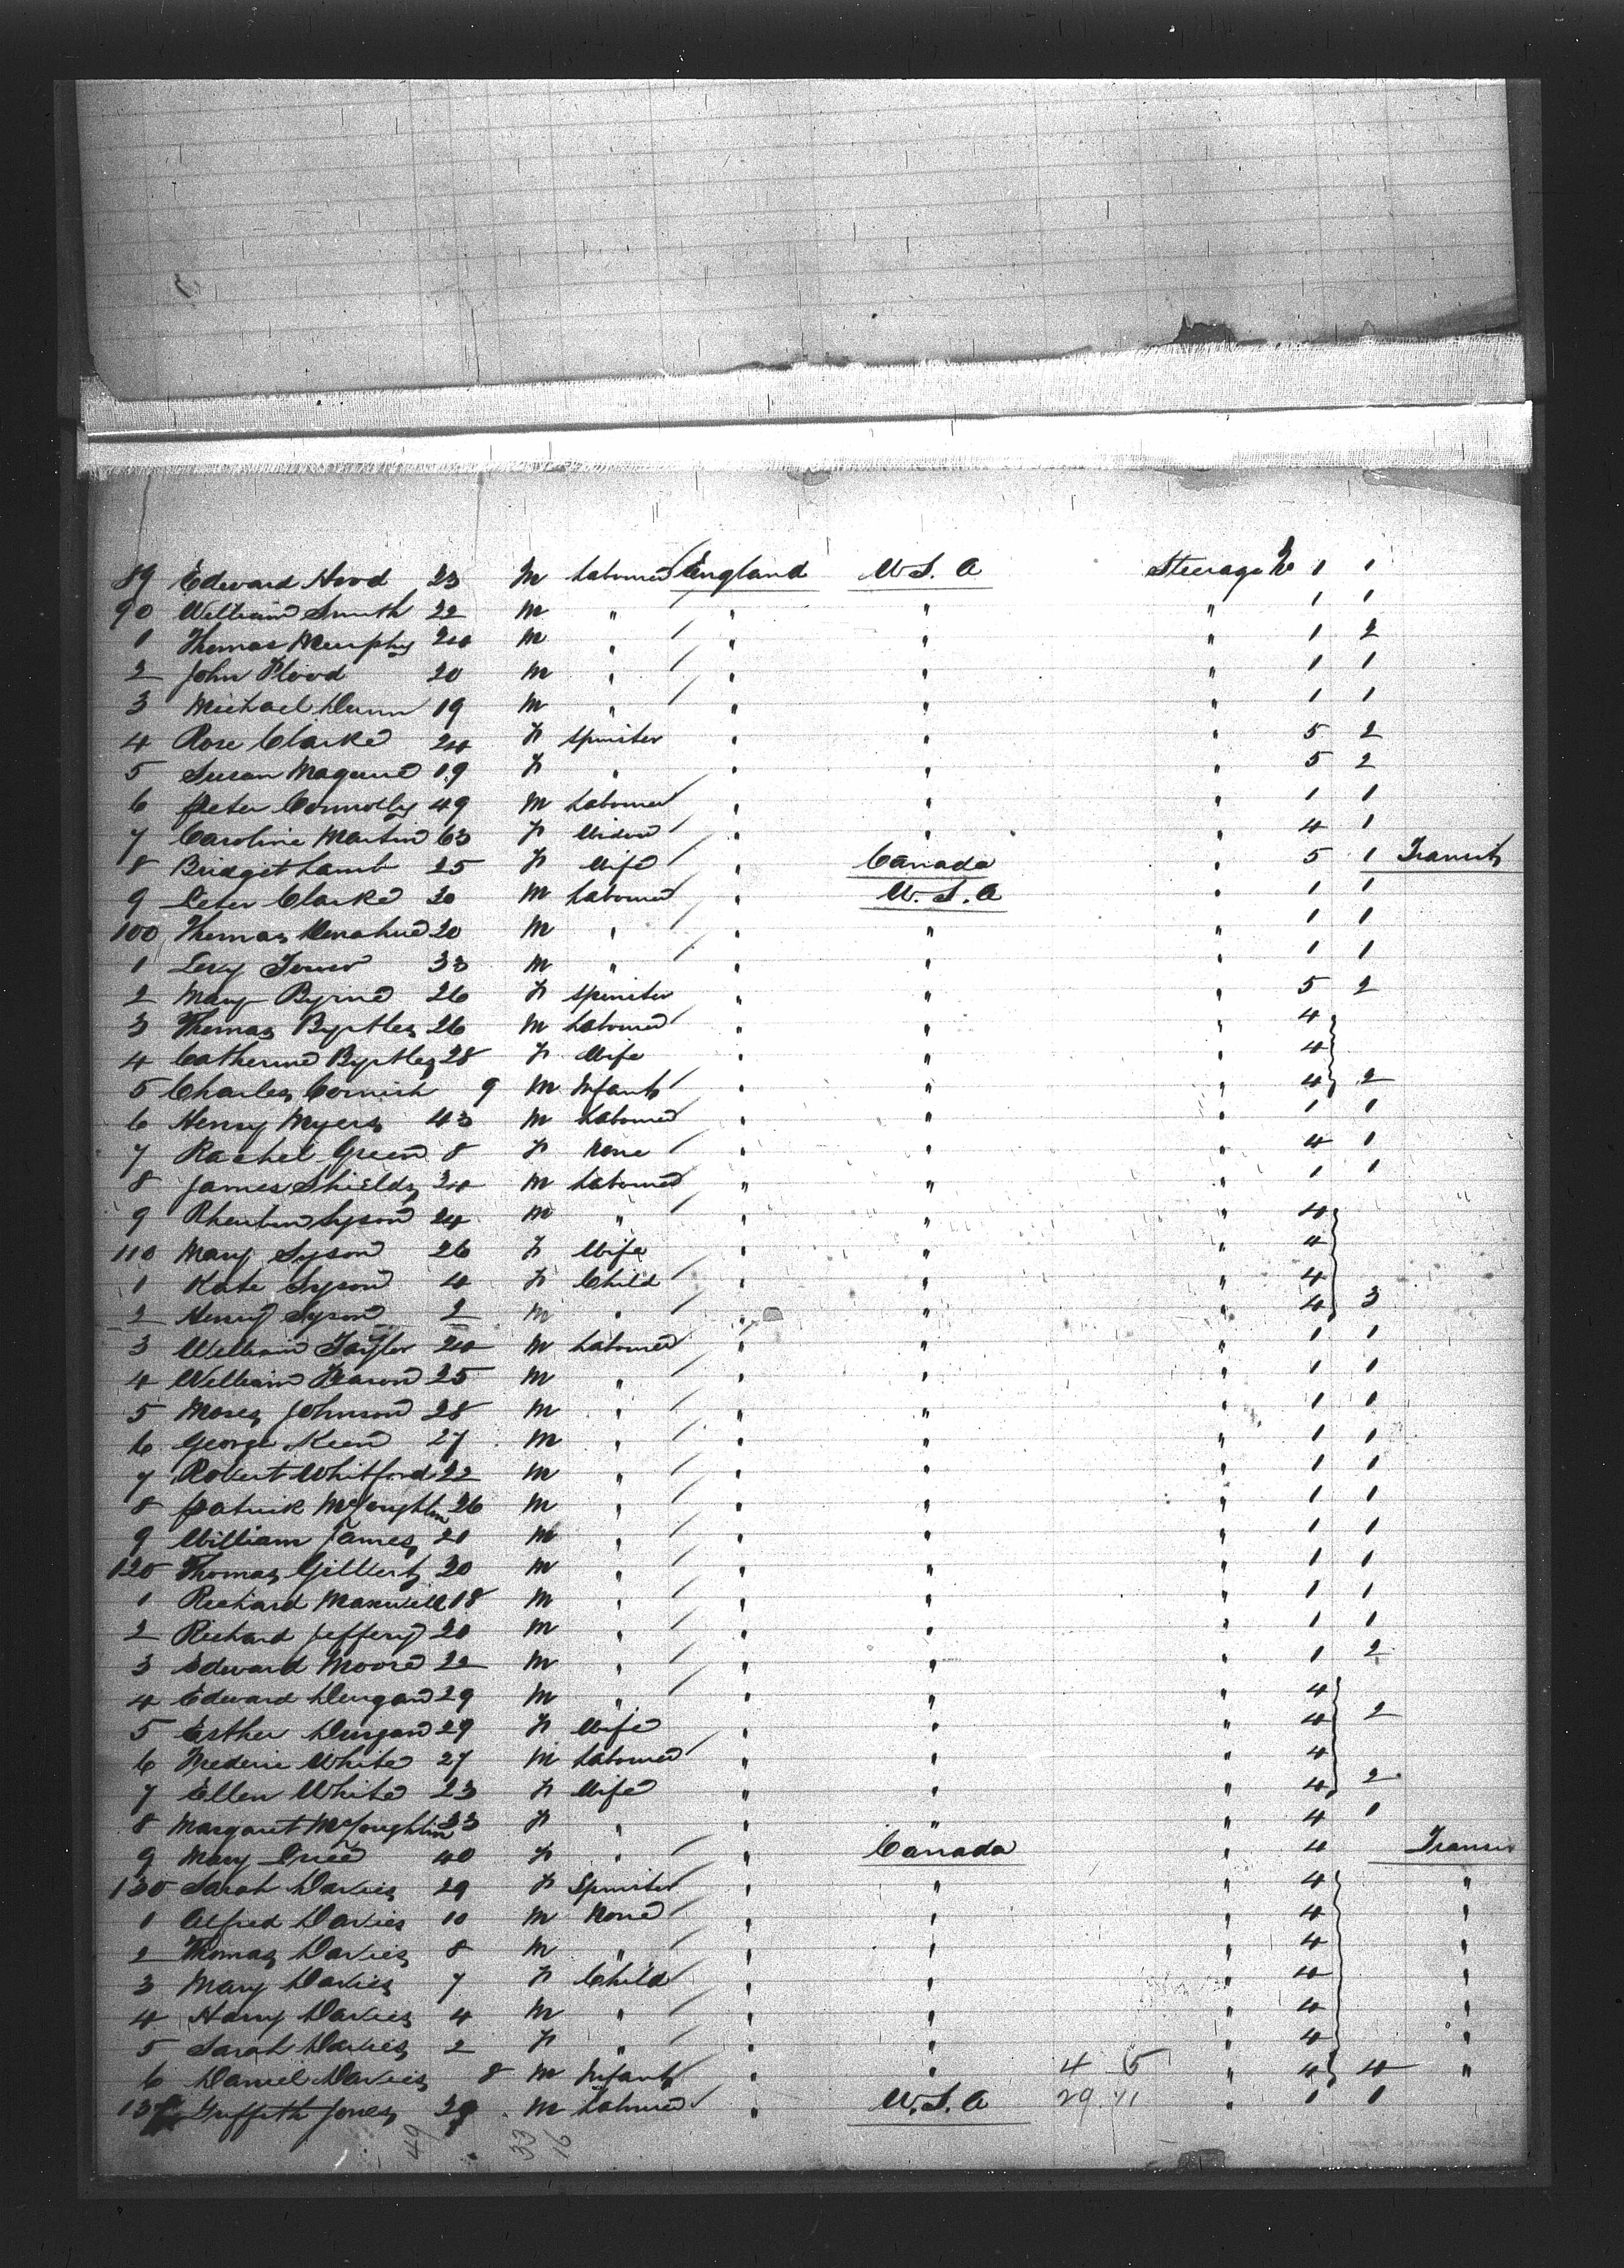 89 Edward Hood 23 M Labourer England U.S.A Steerage 1 1
90 William Smith 22 M " " " " 1 1
1 Thomas Murphy 24 M " " " " 1 2
2 John Flood 20 M " " " " 1 1
3 Michael Dunn 19 M " " " " 1 1
4 Rose Clarke 24 F Spinster " " " 5 2
5 Susan Maguire 19 F " " " " 5 2
6 Peter Connolly 49 M Labourer " " " 1 1
7 Caroline Martin 63 F Widow " " " 4 1
8 Bridget Lamb 25 F Wife " Canada " 5 1 Transit
9 Peter Clarke 20 M Labourer " U.S.A " 1 1
100 Thomas Donahue 20 M " " " " 1 1
1 Levy 33 M " " " " 1 1
2 Mary Byrne 26 F Spinster " " " 5 2
3 Thomas Byrtles 26 M Labourer " " " 4
4 Catherine Byrtles 28 F Wife " " " 4
5 Charles Cornish 9 M Infant " " " 4 2
6 Henry Myers 43 M Labourer " " " 1 1
7 Rachel Green 8 F None " " " 4 1
8 James Shields 24 M Labourer " " " 1 1
9 Rheuben Syson 24 M " " " " 4
110 Mary Syson 26 F Wife " " " 4
1 Kate Syson 4 F Child " " " 4
2 Henry Syson 2 M " " " " 4 3
3 William Taylor 24 M Labourer " " " 1 1
4 William 25 M " " " " 1 1
5 Moses Johnson 28 M " " " " 1 1
6 George Keen 27 M " " " " 1 1
7 Robert Whitford 22 M " " " " 1 1
8 Patrick McLoughlin 26 M " " " " 1 1
9 William James 21 M " " " " 1 1
120 Thomas Gilbert 30 M " " " " 1 1
1 Richard Maxwell 18 M " " " " 1 1
2 Richard Jeffery 20 M " " " " 1 1
3 Edward Moore 22 M " " " " 1 2
4 Edward Durgan 29 M " " " " 4
5 Esther Durgan 29 F Wife " " " 4 2
6 Frederic White 27 M Labourer " " " 4
7 Ellen White 23 F Wife " " " 4 2
8 Margaret McLoughlin 33 F " " " " 4 1
9 Mary Price 40 F " " Canada " 4 Transit
130 Sarah Davies 29 F Spinster " " " 4 "
1 Alfred Davies 10 M None " " " 4 "
2 Thomas Davies 8 M " " " " 4 "
3 Mary Davies 7 F Child " " " 4 "
4 Harry Davies 4 M " " " " 4 "
5 Sarah Davies 2 F " " " " 4 "
6 Daniel Davies 8 M Infant " " 4 5 " 4 4 "
137 Griffith Jones 29 M Labourer " U.S.A 29 11 " 1 1
49 33 16